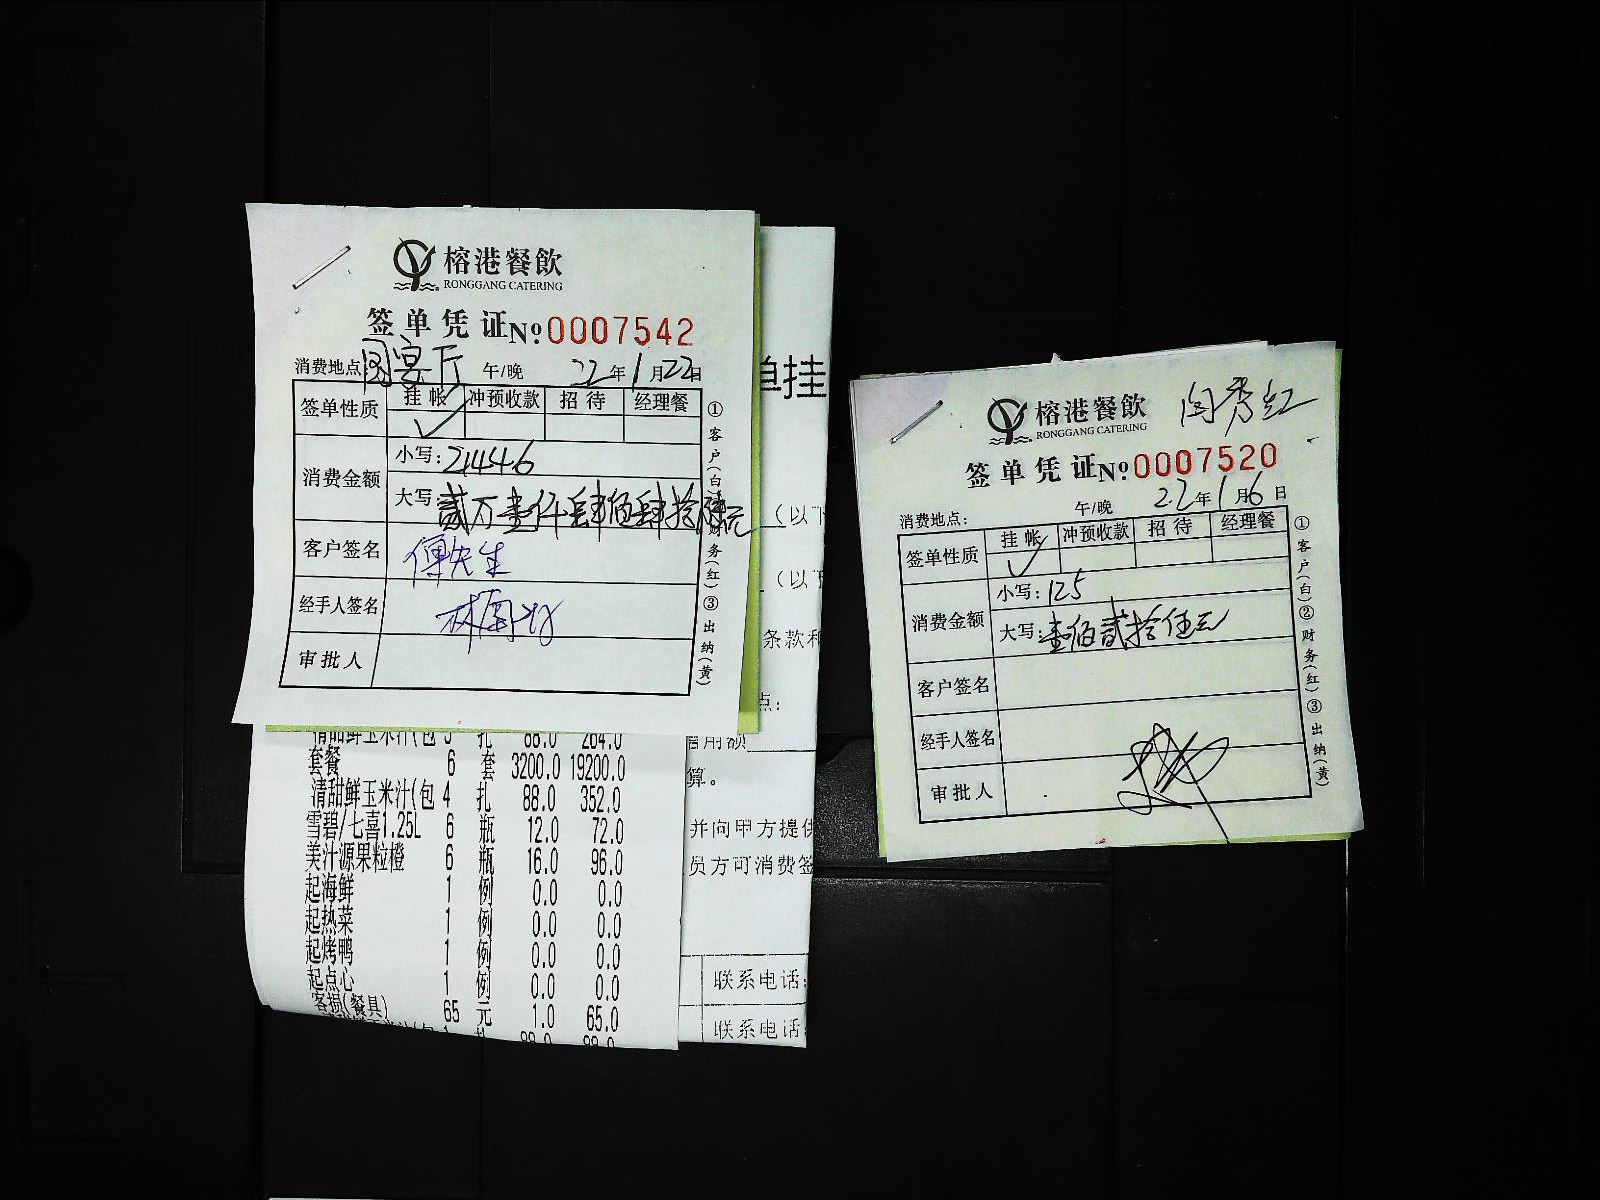 榕港餐飲
RONGGANG CATERING
签单凭证 №0007542
消费地点: 国宴厅 午/晚 22年1月22日
签单性质 挂帐 冲预收款 招待 经理餐
✓
消费金额 小写: 21446
大写: 贰万壹仟肆佰肆拾陆元
客户签名 傅先生
经手人签名
审批人
①客户(白)②财务(红)③出纳(黄)
清甜鲜玉米汁(包 3 扎 88.0 264.0
套餐 6 套 3200.0 19200.0
清甜鲜玉米汁(包 4 扎 88.0 352.0
雪碧/七喜1.25L 6 瓶 12.0 72.0
美汁源果粒橙 6 瓶 16.0 96.0
起海鲜 1 例 0.0 0.0
起热菜 1 例 0.0 0.0
起烤鸭 1 例 0.0 0.0
起点心 1 例 0.0 0.0
客损(餐具) 65 元 1.0 65.0
单挂
(以下
(以下
条款和
点:
信用额
算。
并向甲方提供
员方可消费签
联系电话:
联系电话:
榕港餐飲
RONGGANG CATERING
闫秀红
签单凭证 №0007520
消费地点: 午/晚 22年1月6日
签单性质 挂帐 冲预收款 招待 经理餐
✓
消费金额 小写: 125
大写: 壹佰贰拾伍元
客户签名
经手人签名
审批人
①客户(白)②财务(红)③出纳(黄)